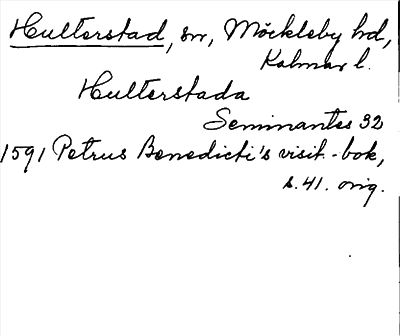 Hulterstad, sn, Möckleby hd,
Kalmar l.
Hulterstada
Seminantes 32
1591 Petrus Benedicti's visit.-bok,
s. 41. orig.